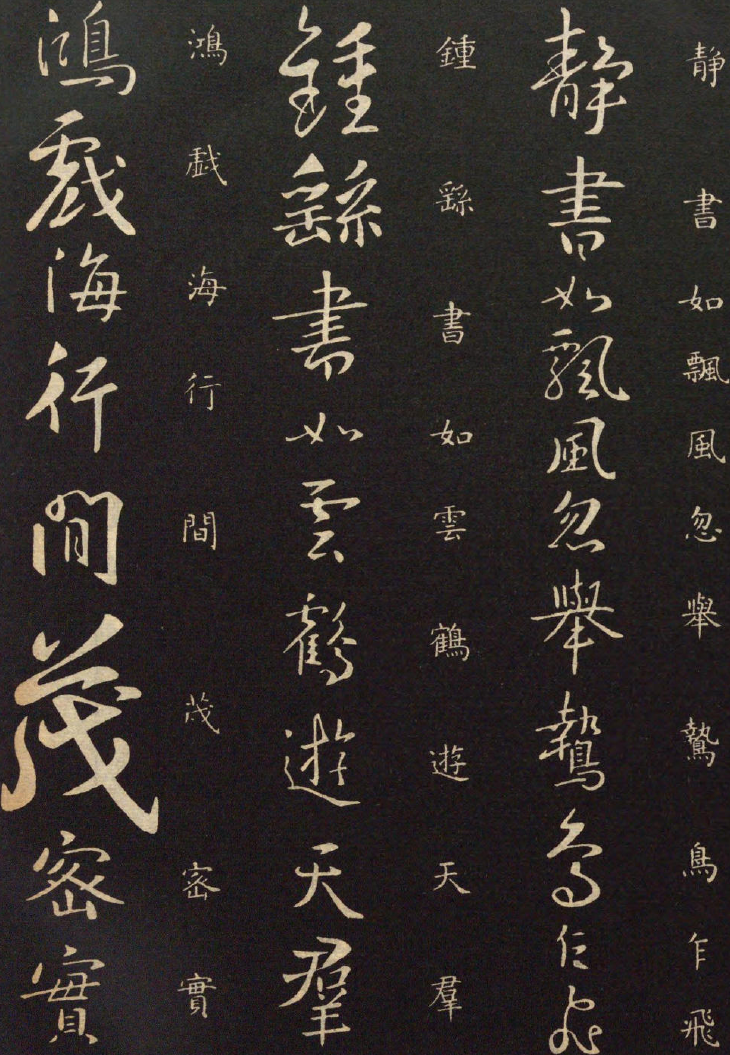 静書如飄風忽舉鷙鳥乍飛
静書如飄風忽舉鷙鳥乍飛
鍾繇書如雲鶴遊天羣
鍾繇書如雲鶴遊天羣
鴻戯海行間茂密實
鴻戯海行間茂密實